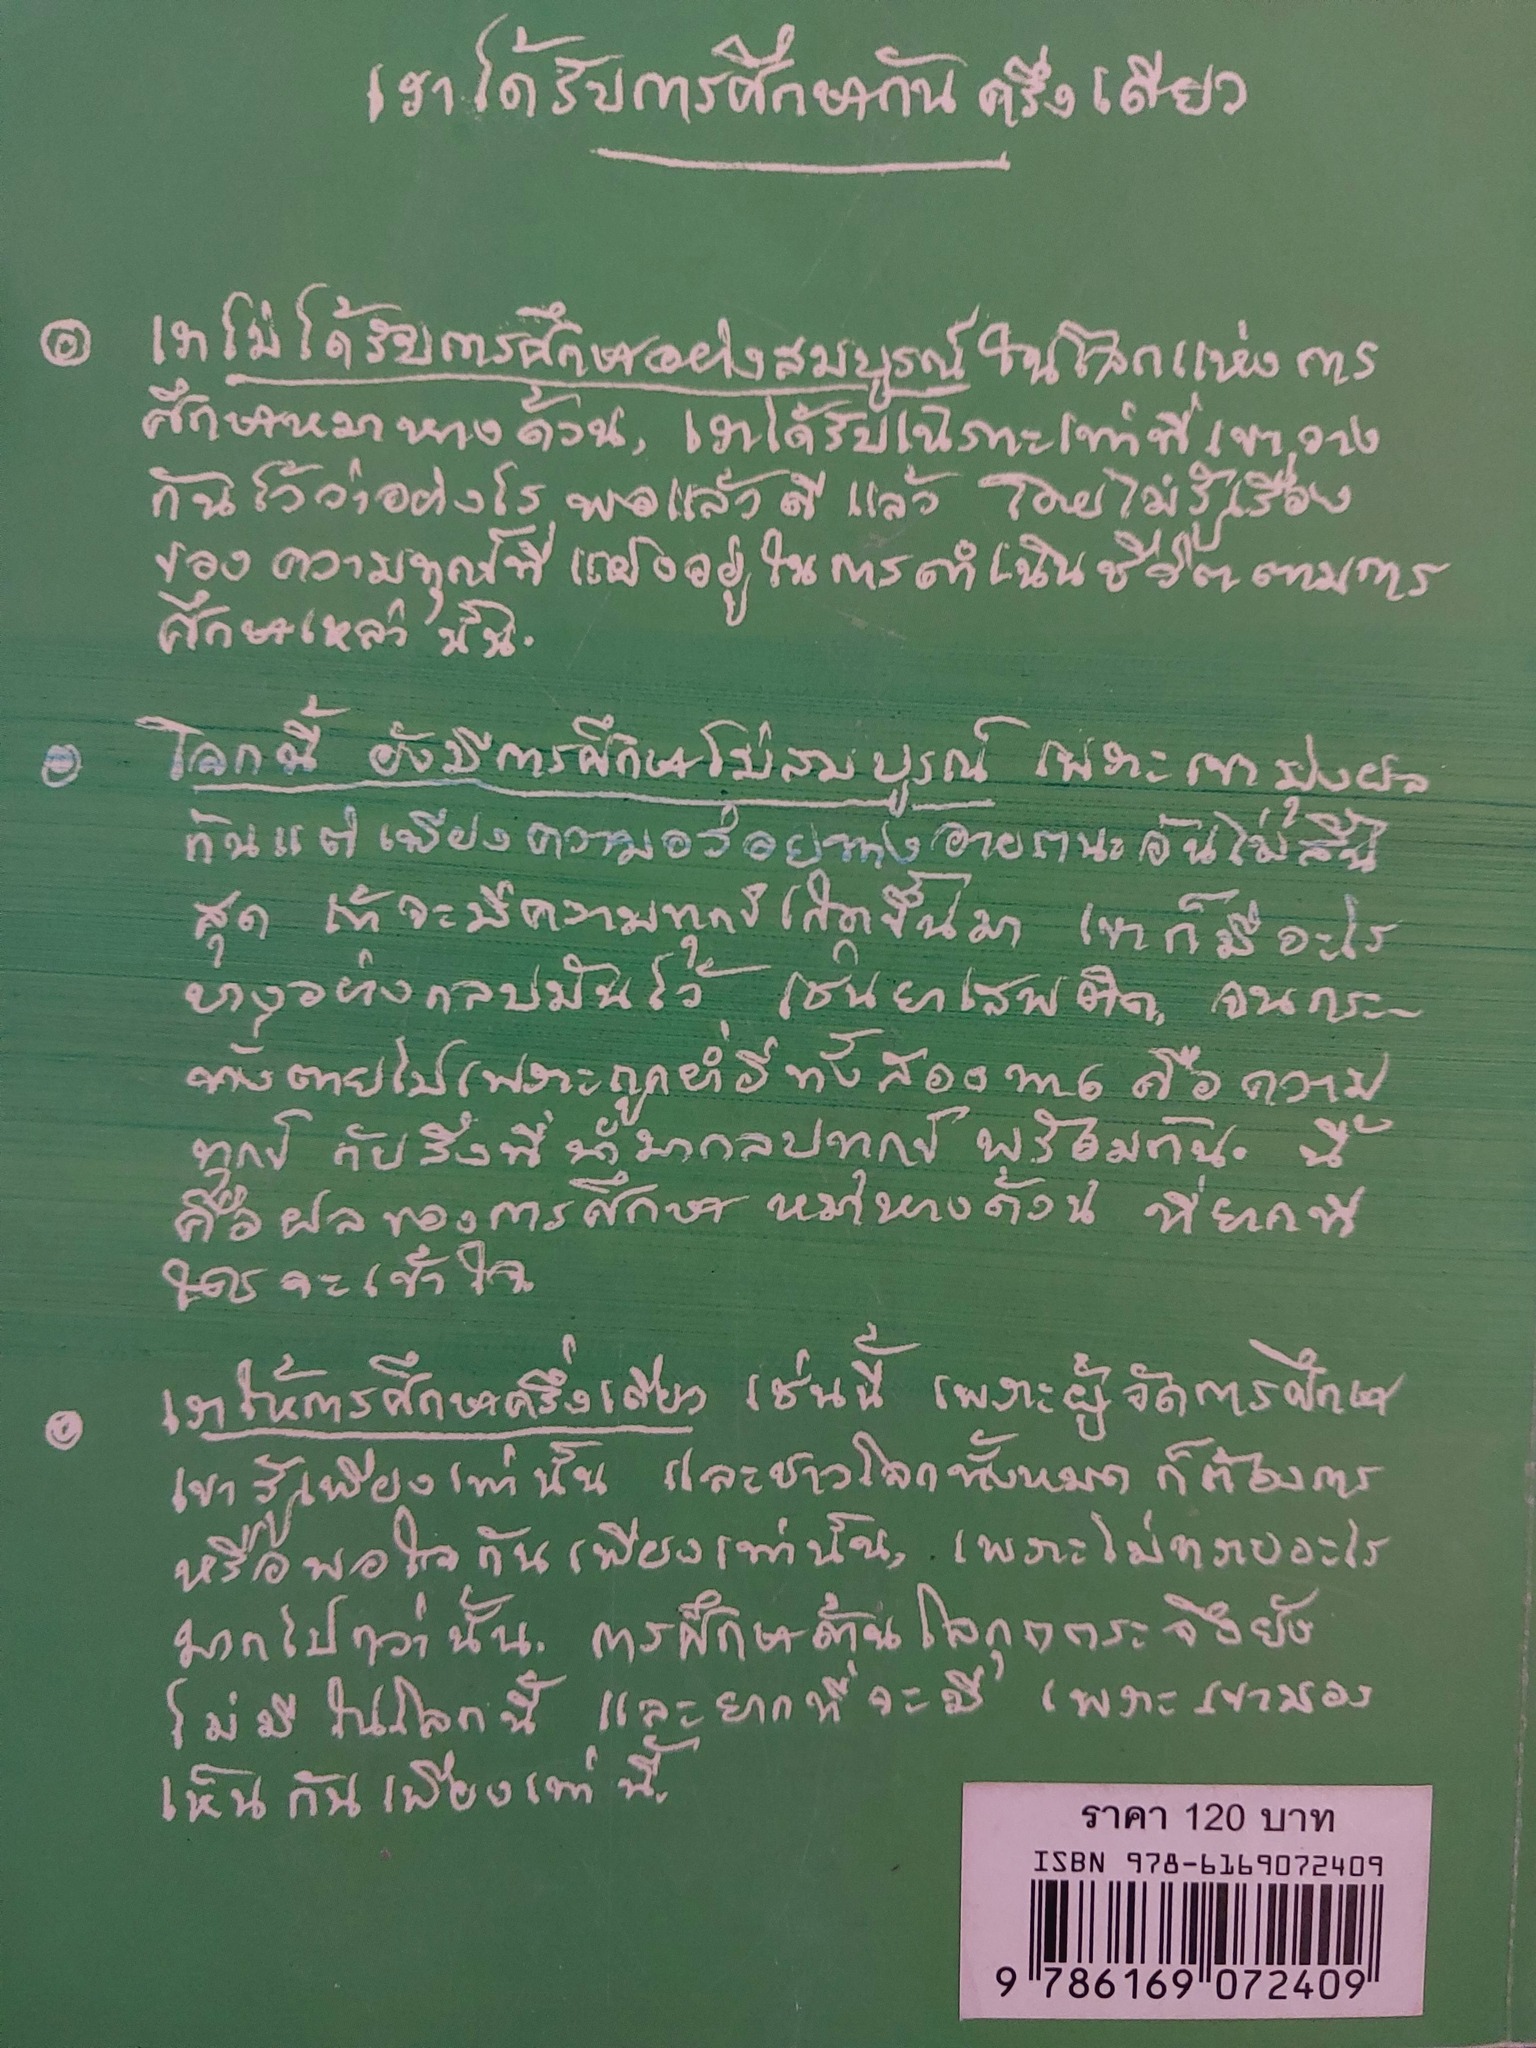 เราได้รับการศึกษากันครึ่งเดียว
เราไม่ได้รับการศึกษาอย่างสมบูรณ์ ในโลกแห่งการ
ศึกษาหมาหางด้วน, เราได้รับเฉพาะเท่าที่เขาวาง
กันไว้ว่าอย่างไร พอแล้วดีแล้ว โดยไม่รู้เรื่อง
ของความทุกข์ที่แฝงอยู่ในการดำเนินชีวิตตามการ
ศึกษาเหล่านั้น.
โลกนี้ ยังมีการศึกษาไม่สมบูรณ์ เพราะเขามุ่งผล
กันแต่เพียงความอร่อยทางอายตนะอันไม่สิ้น
สุด ถ้าจะมีความทุกข์เกิดขึ้นมา เขาก็มีอะไร
บางอย่างกลบมันไว้ เช่นยาเสพติด, จนกระ
ทั่งตายไปเพราะถูกย่ำยีทั้งสองทาง คือความ
ทุกข์ กับสิ่งที่นำมากลบทุกข์ พร้อมกัน. นี้
คือผลของการศึกษา หมาหางด้วน ที่ยากที่
ใครจะเข้าใจ.
เราให้การศึกษาครึ่งเดียว เช่นนี้ เพราะผู้จัดการศึกษา
เขารู้เพียงเท่านั้น และชาวโลกทั้งหมด ก็ต้องการ
หรือพอใจกันเพียงเท่านั้น, เพราะไม่ทราบอะไร
มากไปกว่านั้น. การศึกษาด้านโลกุตตระจึงยัง
ไม่มีในโลกนี้ และยากที่จะมี เพราะเขามอง
เห็นกันเพียงเท่านี้.
ราคา 120 บาท
ISBN 978-6169072409
9 786169 072409